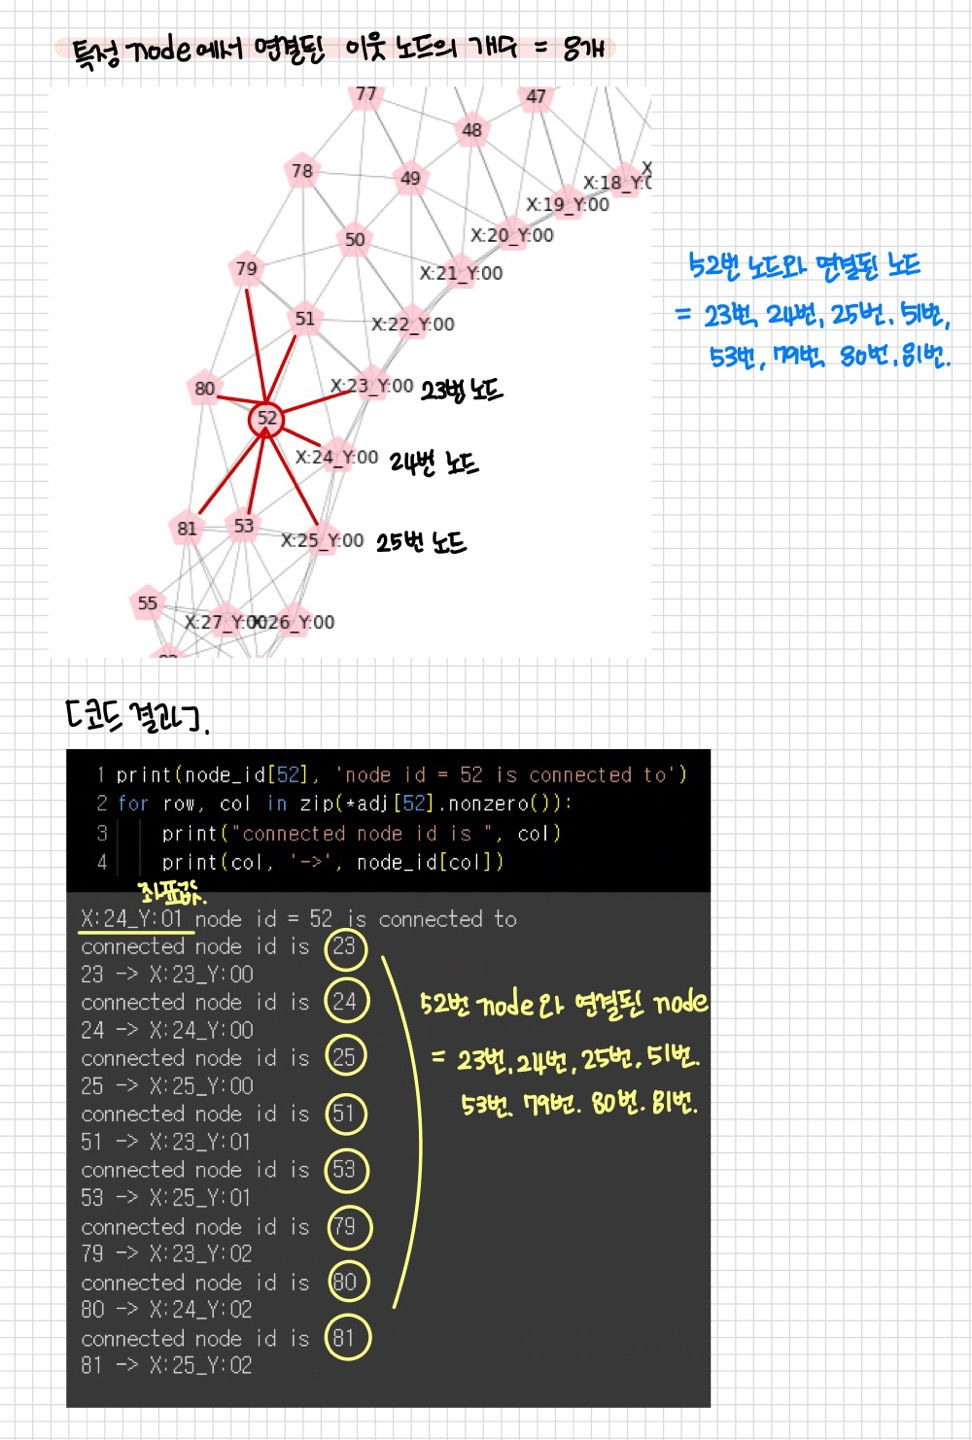 특정 node에서 연결된 이웃 노드의 개수 = 8개
77
47
48
78
49
X:18_Y:0
X
X:19_Y:00
50
X:20_Y:00
79
X:21_Y:00
51
X:22_Y:00
80
X:23_Y:00
23번 노드
52
X:24_Y:00
24번 노드
81
53
X:25_Y:00
25번 노드
55
X:27_Y:00
X:26_Y:00
52번 노드와 연결된 노드
= 23번, 24번, 25번, 51번,
53번, 79번, 80번, 81번.
[코드 결과].
1 print(node_id[52], 'node id = 52 is connected to')
2 for row, col in zip(*adj[52].nonzero()):
3 print("connected node id is ", col)
4 print(col, '->', node_id[col])
좌표값.
X:24_Y:01 node id = 52 is connected to
connected node id is 23
23 -> X:23_Y:00
connected node id is 24
24 -> X:24_Y:00
connected node id is 25
25 -> X:25_Y:00
connected node id is 51
51 -> X:23_Y:01
connected node id is 53
53 -> X:25_Y:01
connected node id is 79
79 -> X:23_Y:02
connected node id is 80
80 -> X:24_Y:02
connected node id is 81
81 -> X:25_Y:02
52번 node와 연결된 node
= 23번, 24번, 25번, 51번.
53번. 79번. 80번. 81번.